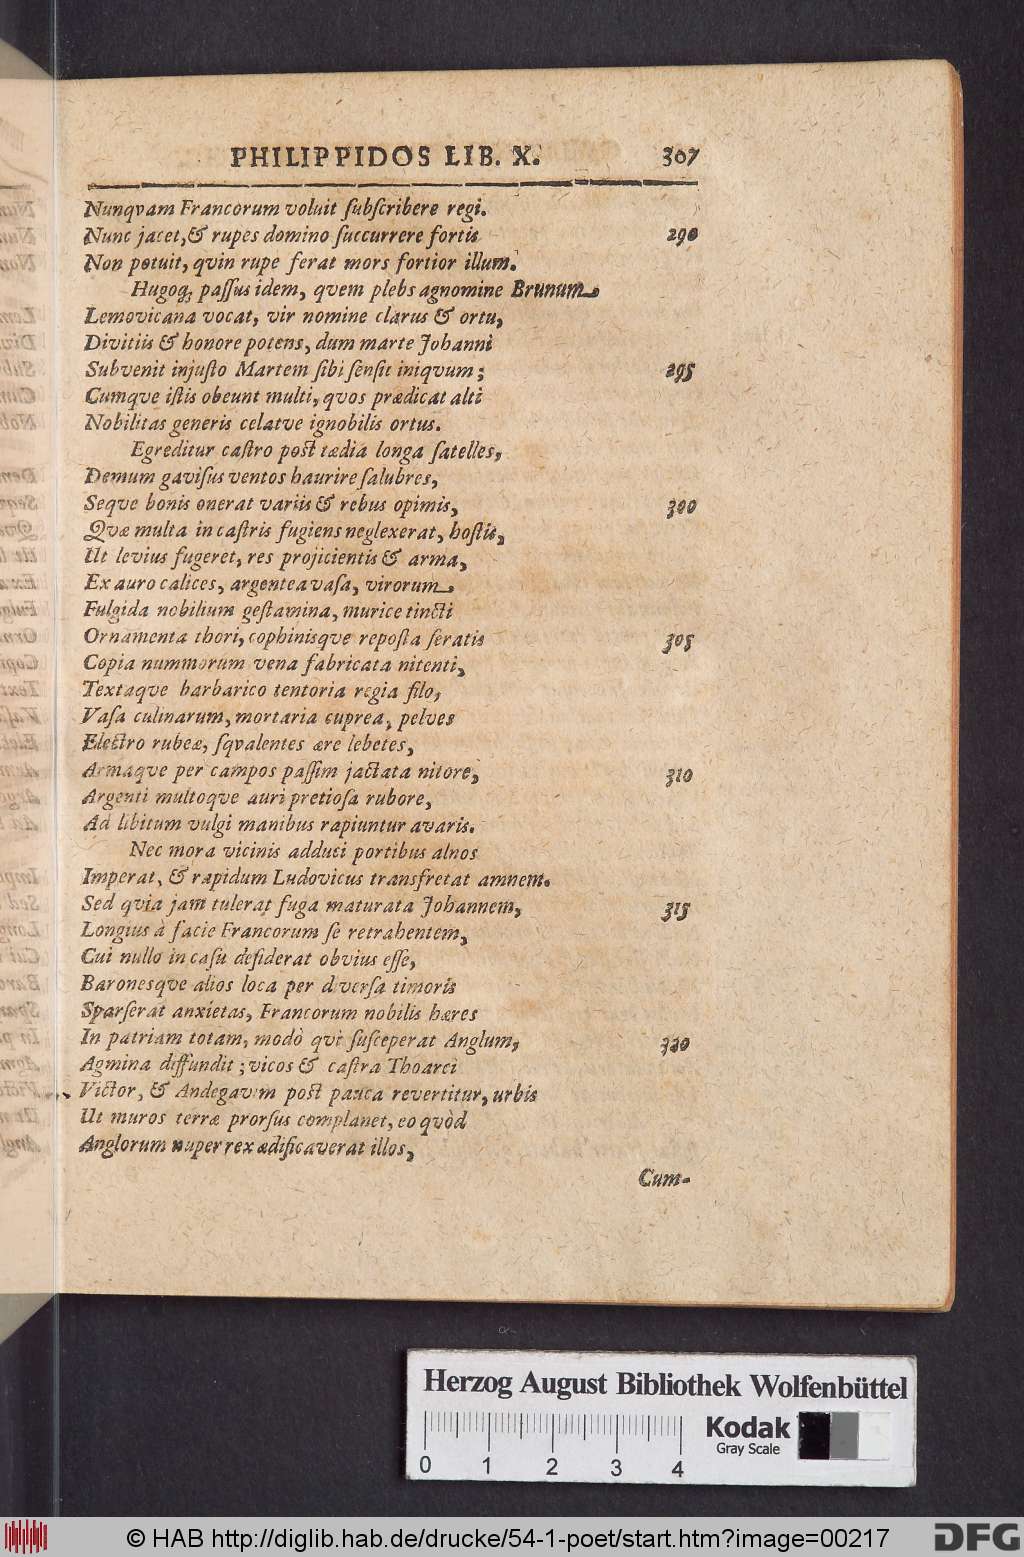 PHILIPPIDOS LIB. X. 307
Nunqvam Francorum voluit ſubſcribere regi.
Nunc jacet, & rupes domino ſuccurrere fortis 290
Non potuit, qvin rupe ferat mors fortior illum.
Hugoq; paſſus idem, qvem plebs agnomine Brunum
Lemovicana vocat, vir nomine clarus & ortu,
Divitiis & honore potens, dum marte Johanni
Subvenit injuſto Martem ſibi ſenſit iniqvum; 295
Cumqve iſtis obeunt multi, qvos prædicat alti
Nobilitas generis celatve ignobilis ortus.
Egreditur caſtro poſt tædia longa ſatelles,
Demum gaviſus ventos haurire ſalubres,
Seqve bonis onerat variis & rebus opimis, 300
Qvæ multa in caſtris fugiens neglexerat, hoſtis,
Ut levius fugeret, res projicientis & arma,
Ex auro calices, argentea vaſa, virorum
Fulgida nobilium geſtamina, murice tincti
Ornamenta thori, cophinisqve repoſta ſeratis 305
Copia nummorum vena fabricata nitenti,
Textaqve barbarico tentoria regia filo,
Vaſa culinarum, mortaria cuprea, pelves
Electro rubeæ, ſqvalentes ære lebetes,
Armaqve per campos paſſim jactata nitore, 310
Argenti multoqve auri pretioſa rubore,
Ad libitum vulgi manibus rapiuntur avaris.
Nec mora vicinis adduci portibus alnos
Imperat, & rapidum Ludovicus transfretat amnem.
Sed qvia jam tulerat fuga maturata Johannem, 315
Longius á facie Francorum ſe retrahentem,
Cui nullo in caſu deſiderat obvius eſſe,
Baronesqve alios loca per diverſa timoris
Sparſerat anxietas, Francorum nobilis hæres
In patriam totam, modò qvę ſuſceperat Anglum, 320
Agmina diffundit; vicos & caſtra Thoarci
Victor, & Andegavim poſt pauca revertitur, urbis
Ut muros terræ prorſus complanet, eo qvòd
Anglorum nuper rex ædificaverat illos,
Cum-
Herzog August Bibliothek Wolfenbüttel
Kodak
Gray Scale
0 1 2 3 4
© HAB http://diglib.hab.de/drucke/54-1-poet/start.htm?image=00217
DFG